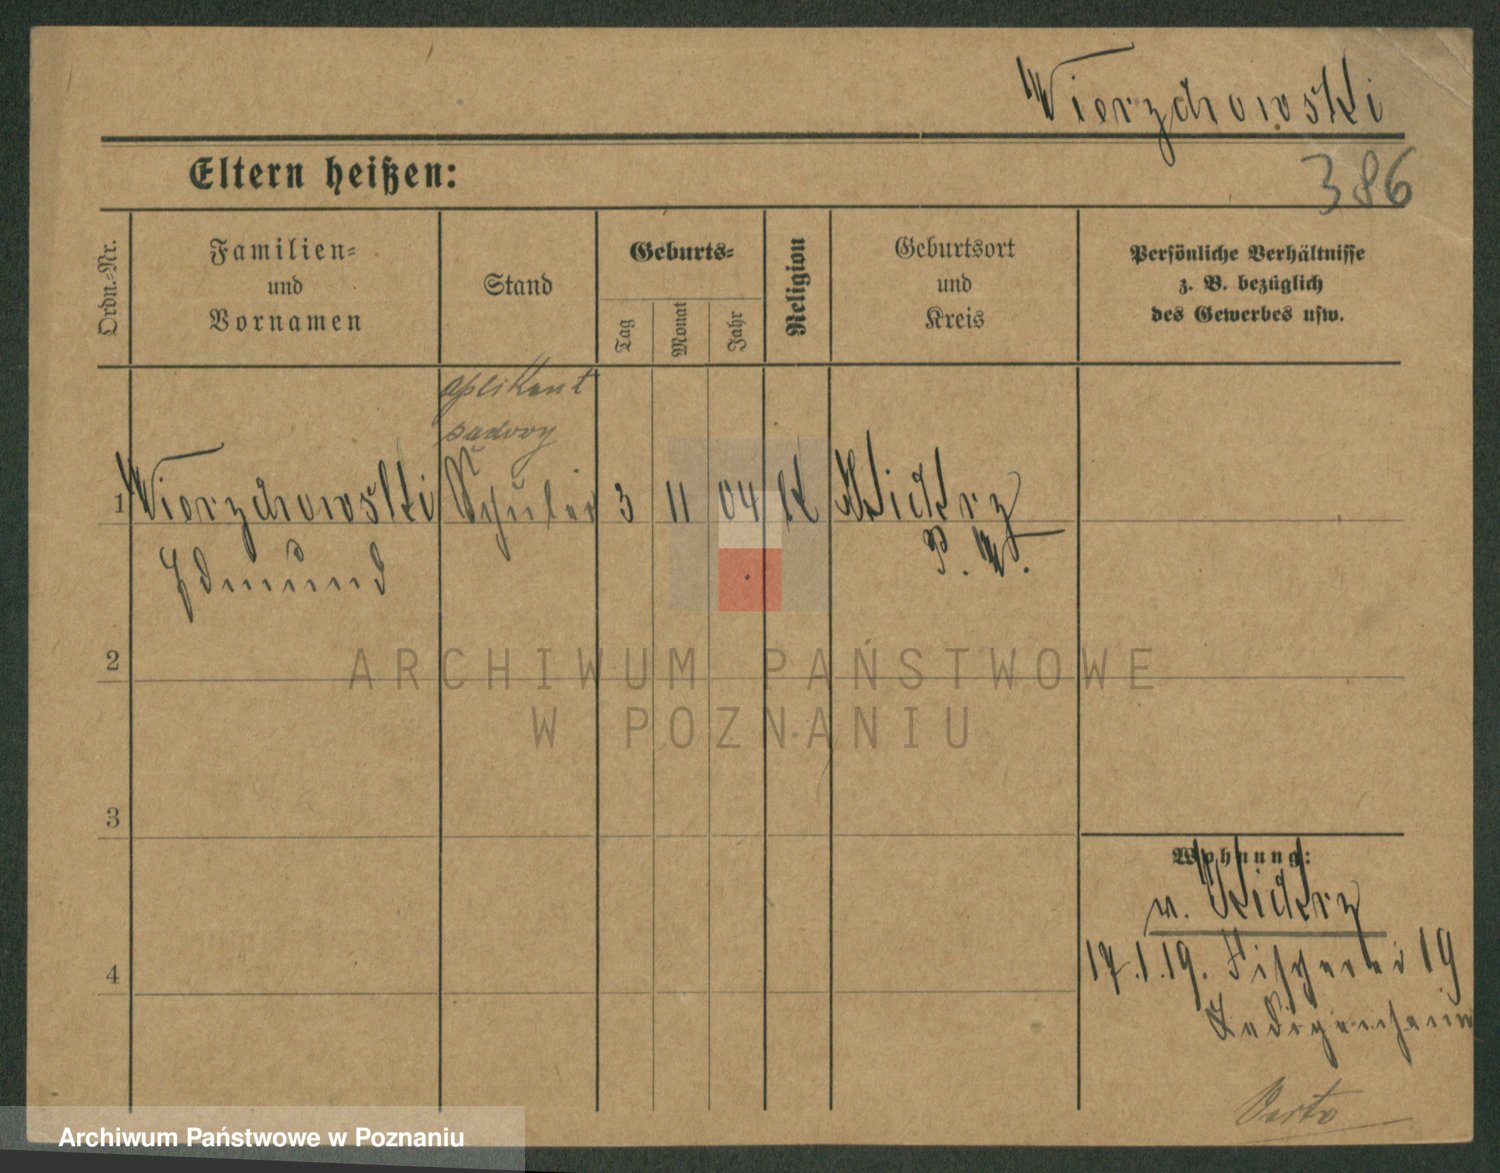 Wierzchowski
Eltern heißen:
386
Ordn.-Nr.
Familien-
und
Vornamen
Stand
Geburts-
Tag
Monat
Jahr
Religion
Geburtsort
und
Kreis
Persönliche Verhältnisse
z. B. bezüglich
des Gewerbes usw.
aplikant
sądowy
1 Wierzchowski Schüler 3 11 04 K Kiekrz
Edmund P. W.
2
ARCHIWUM PAŃSTWOWE
W POZNANIU
3
Wohnung:
v. Kiekrz
17.1.19. Fischerei 19
4
Ledigenheim
Archiwum Państwowe w Poznaniu